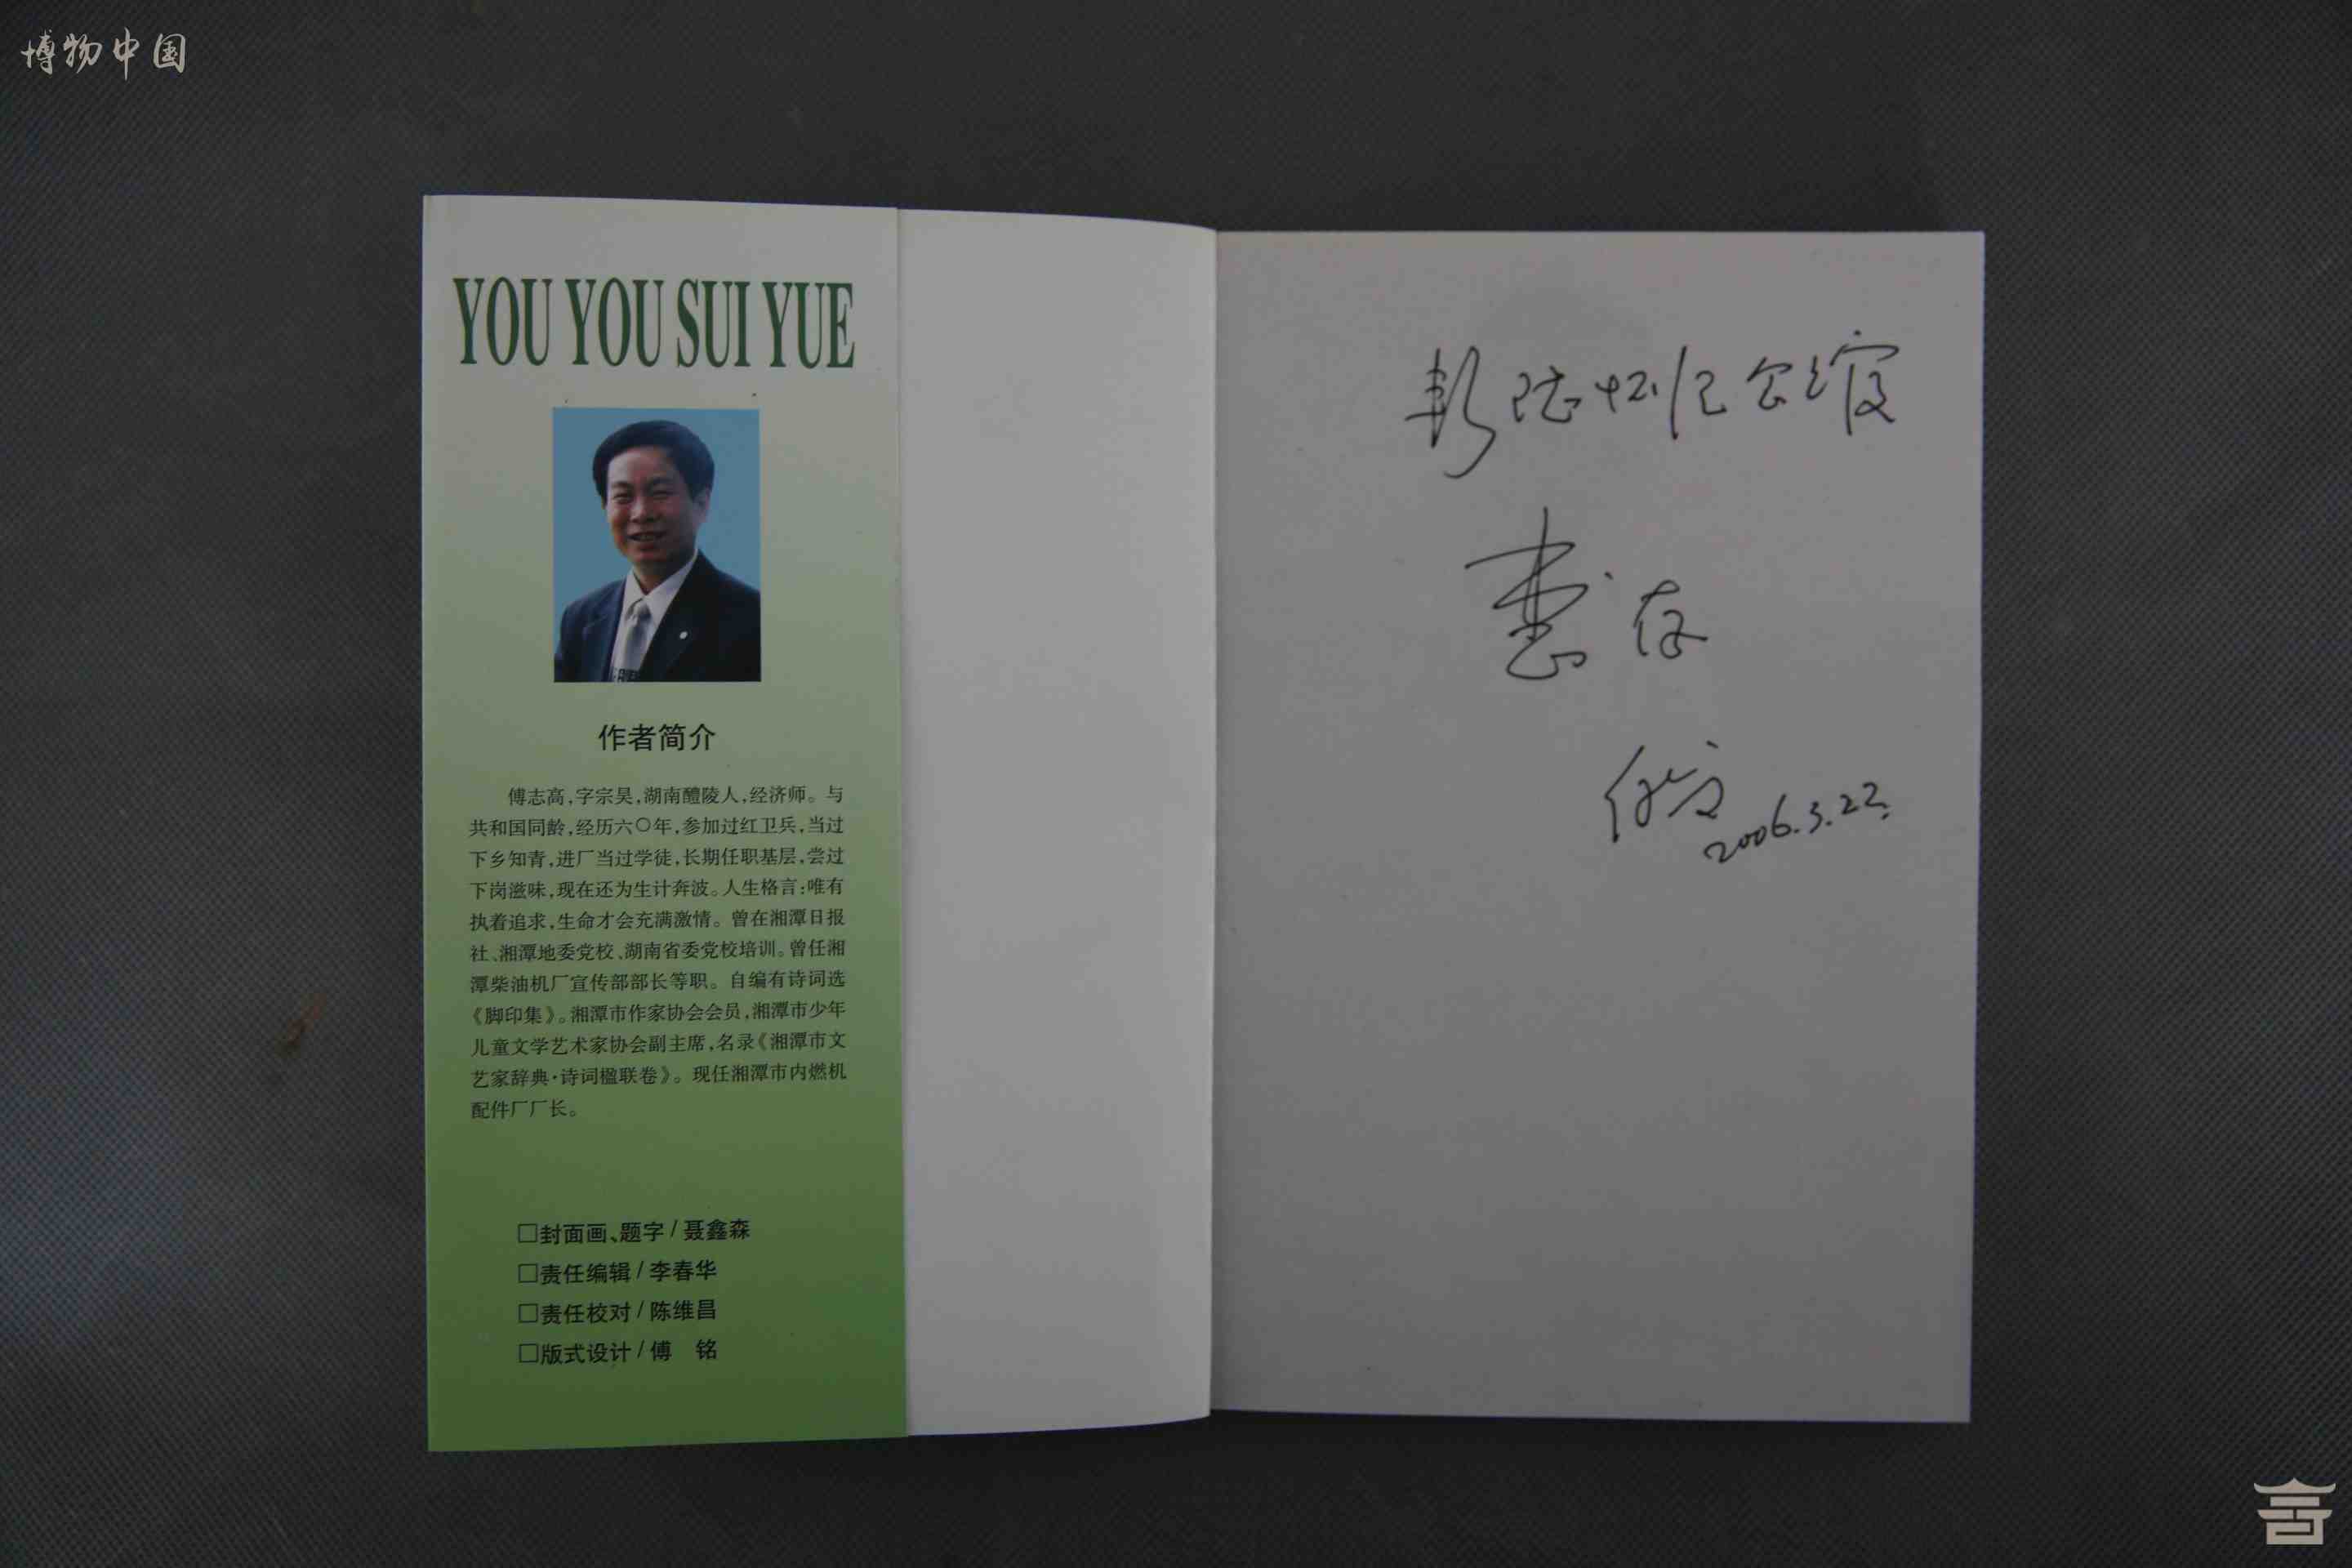 博物中国
YOU YOU SUI YUE
作者简介
傅志高,字宗昊,湖南醴陵人,经济师。与
共和国同龄,经历六〇年,参加过红卫兵,当过
下乡知青,进厂当过学徒,长期任职基层,尝过
下岗滋味,现在还为生计奔波。人生格言:唯有
执着追求,生命才会充满激情。曾在湘潭日报
社、湘潭地委党校、湖南省委党校培训。曾任湘
潭柴油机厂宣传部部长等职。自编有诗词选
《脚印集》。湘潭市作家协会会员,湘潭市少年
儿童文学艺术家协会副主席,名录《湘潭市文
艺家辞典·诗词楹联卷》。现任湘潭市内燃机
配件厂厂长。
□封面画、题字/聂鑫森
□责任编辑/李春华
□责任校对/陈维昌
□版式设计/傅 铭
彭德怀纪念馆
惠存
2006.3.22.